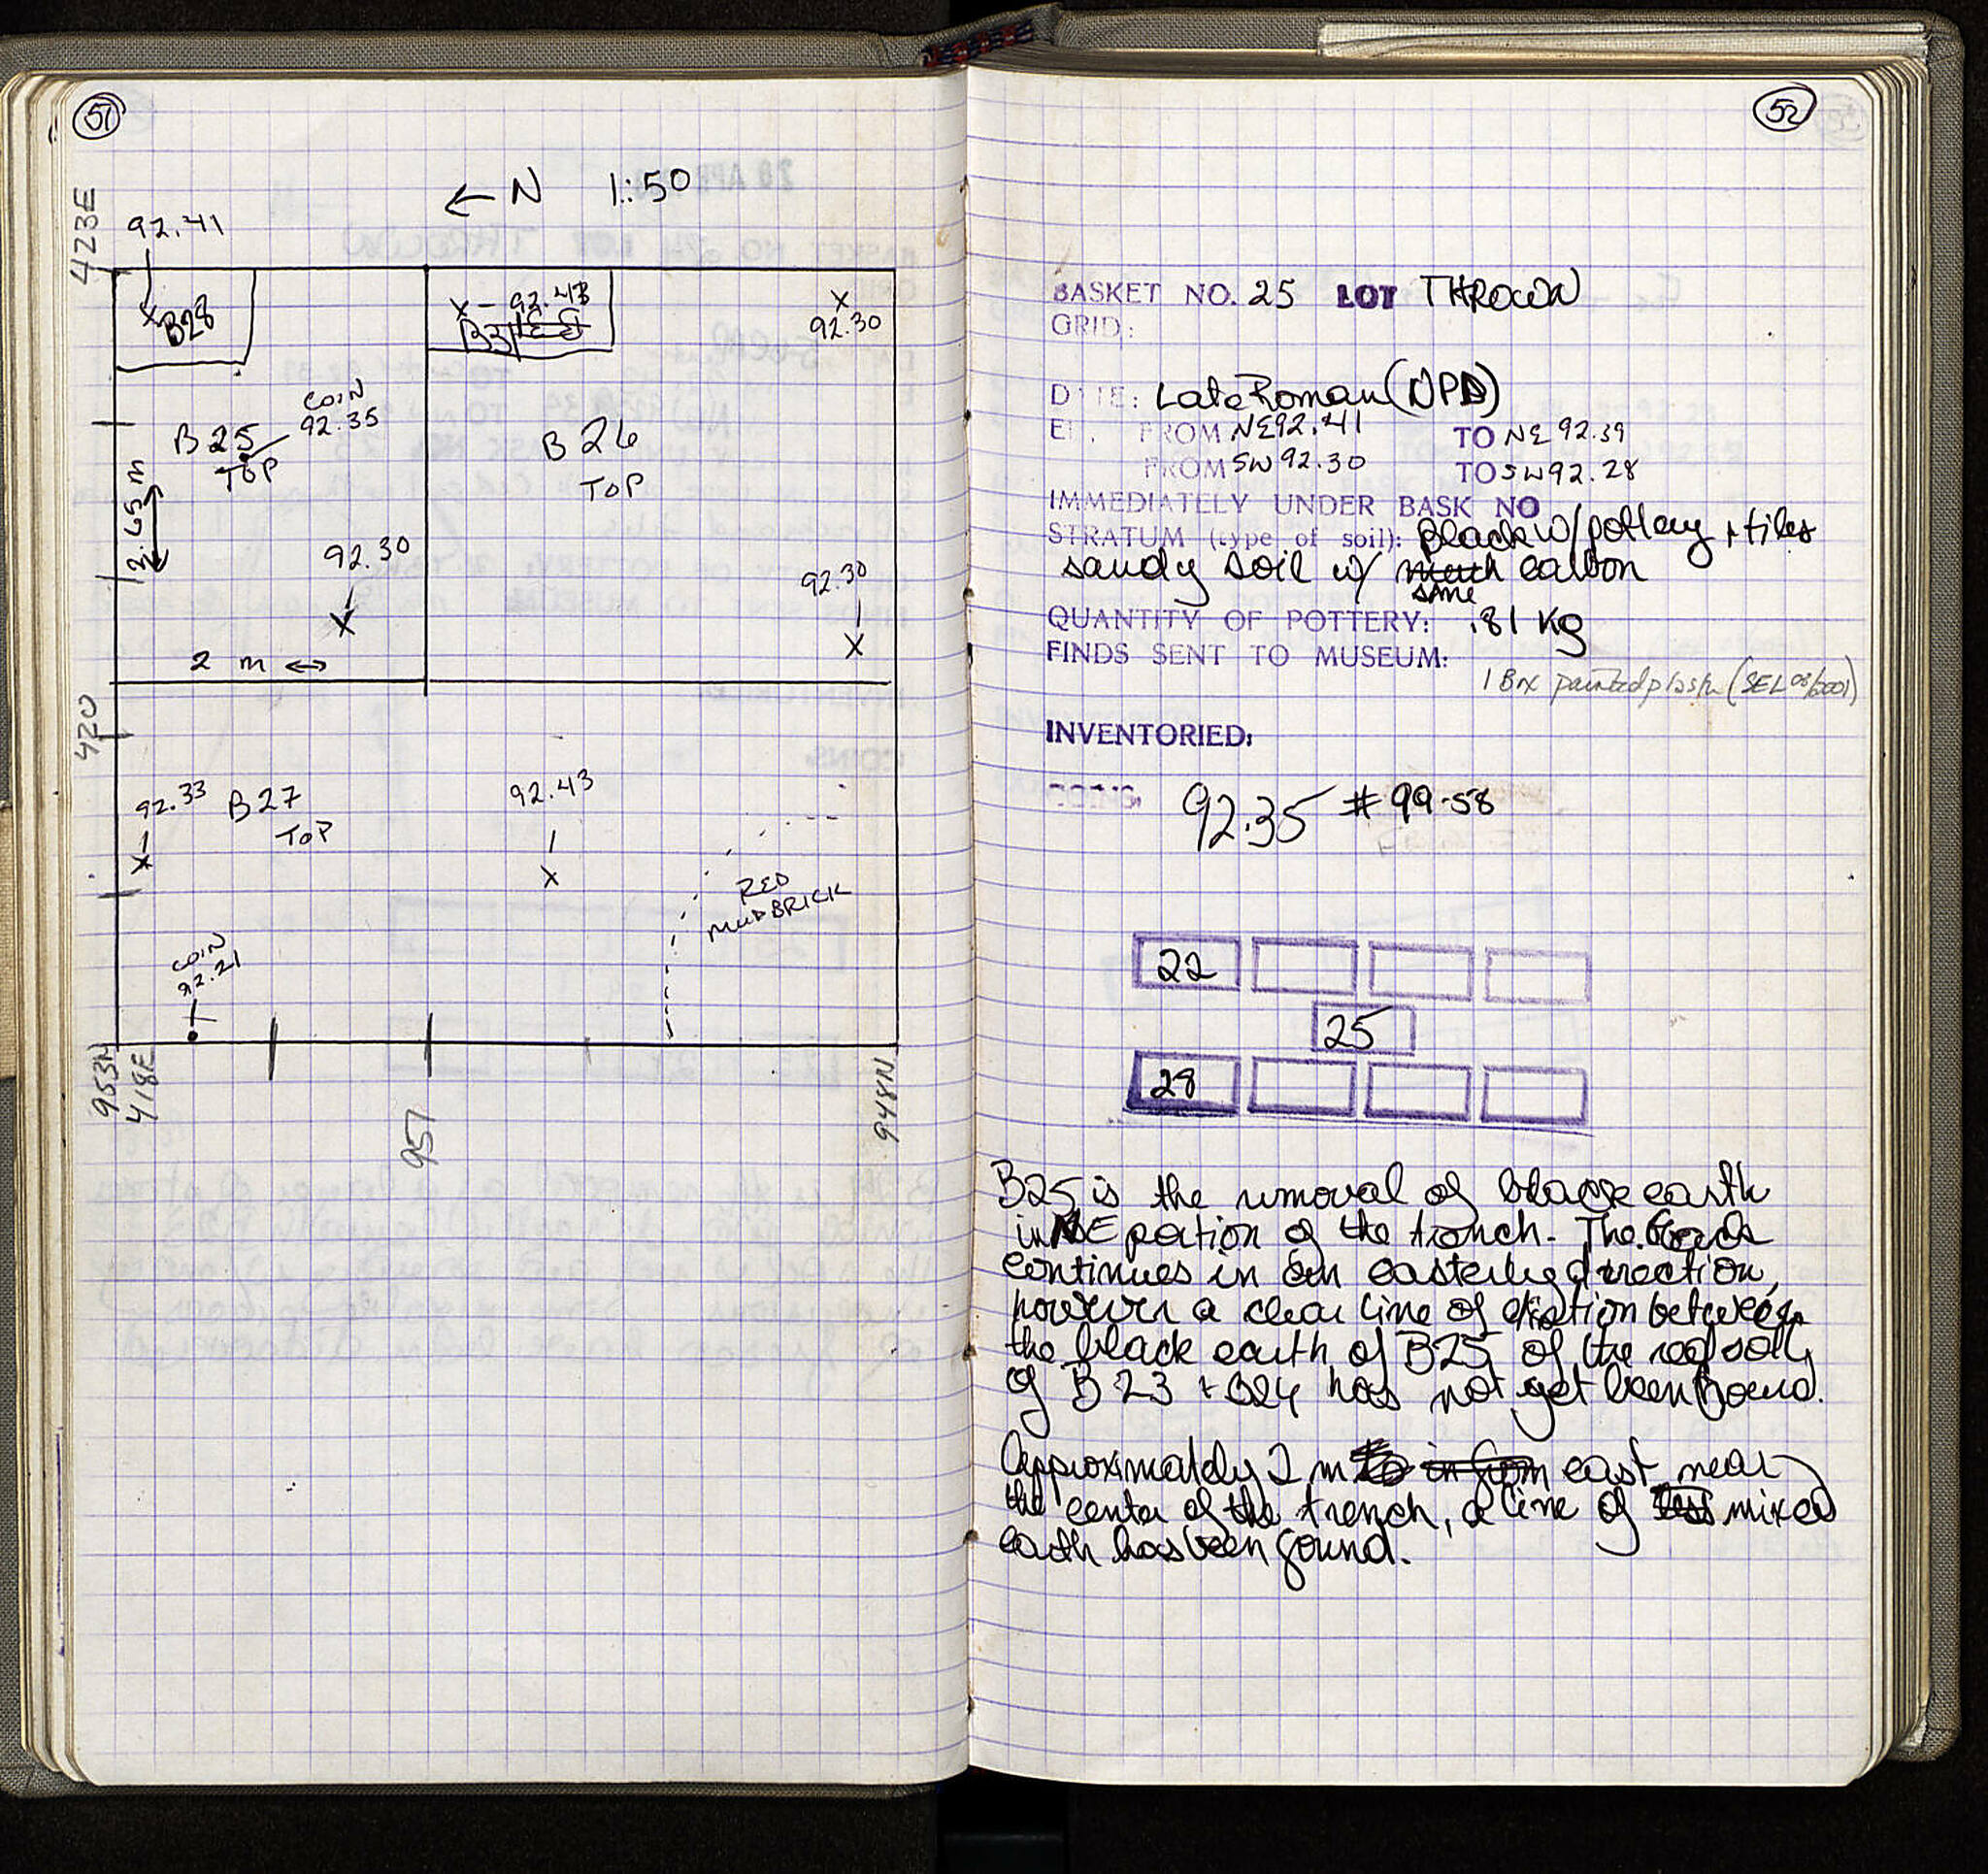 51
← N 1:50
423E
92.41
B28
X - 92.43
B31
X
92.30
COIN
92.35
B 25
TOP
B 26
TOP
2.65 m
92.30
X
92.30
X
2 m ↔
420
92.33
X
B 27
TOP
92.43
X
RED
MUDBRICK
COIN
92.21
953N
418E
951
948N
52
BASKET NO. 25 LOT THROWN
GRID:
DATE: Late Roman (NPD)
EL. FROM NE 92.41 TO NE 92.39
FROM SW 92.30 TO SW 92.28
IMMEDIATELY UNDER BASK NO
STRATUM (type of soil): black w/pottery + tiles
sandy soil w/ much carbon
some
QUANTITY OF POTTERY: .81 kg
FINDS SENT TO MUSEUM:
1 Box painted plaster (SEL 03/2001)
INVENTORIED:
COINS: 92.35 # 99-58
22
25
28
B25 is the removal of black earth
in NE portion of the trench. The
continues in an easterly direction,
however a clear line of between
the black earth of B25 of the red soil
of B 23 + B24 has not yet been found.
Approximately 2 m to in from east near
the center of the trench, a line of less mixed
earth has been found.